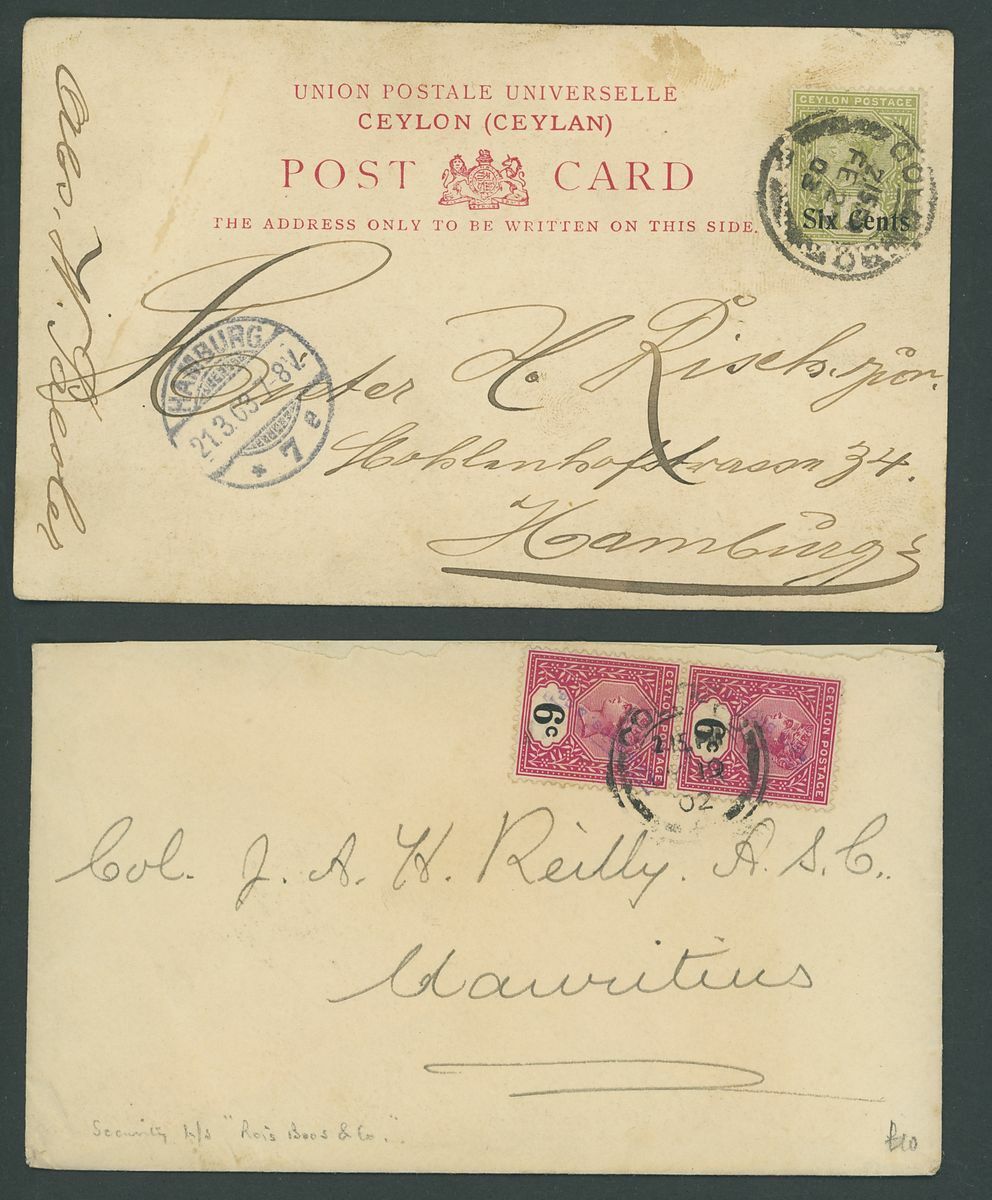 UNION POSTALE UNIVERSELLE
CEYLON (CEYLAN)
POST CARD
THE ADDRESS ONLY TO BE WRITTEN ON THIS SIDE.
CEYLON POSTAGE
Six Cents
2 15
FE 2
03
HAMBURG
21.3.03 7-8V.
* 7 e
H.
34.
Hamburg
CEYLON POSTAGE
6c
CEYLON POSTAGE
6c
19
02
Col. J. A. H. Reilly. A. S. C.
Mauritius
Security h/s "Ross Boos & Co."
£10